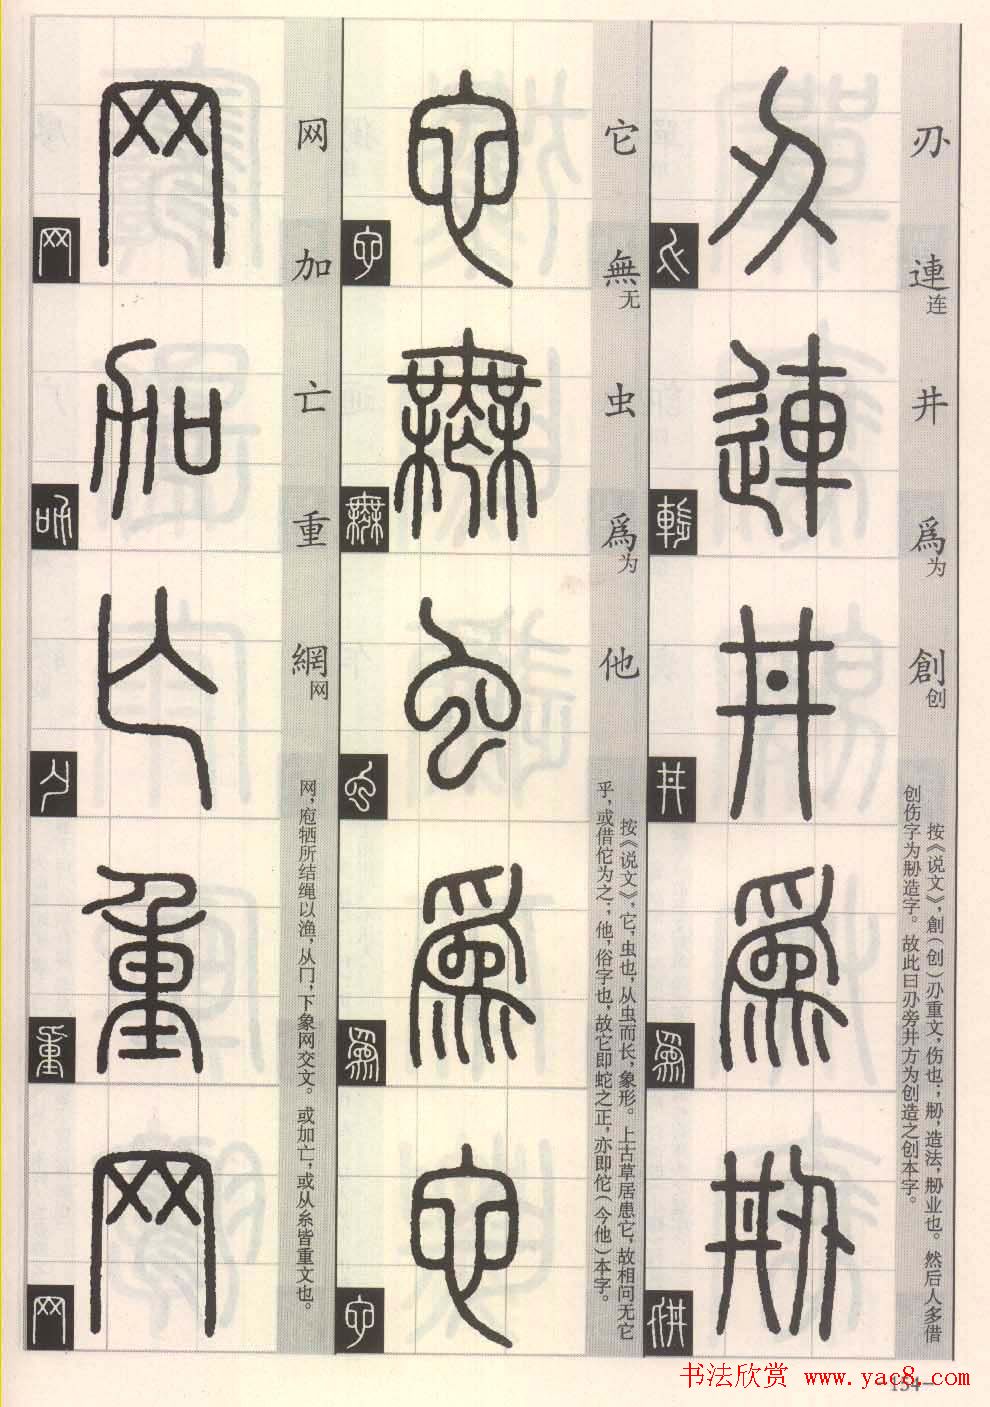 刅連井爲創
连
为
创
按《说文》，創（创）刅重文，伤也；刱，造法，刱业也。然后人多借
创伤字为刱造字。故此曰刅旁井方为创造之创本字。
它無虫爲他
无
为
按《说文》，它，虫也，从虫而长，象形。上古草居患它，故相问无它
乎，或借佗为之；他，俗字也，故它即蛇之正，亦即佗（今他）本字。
网加亡重網
网
网，庖牺所结绳以渔，从冂，下象网交文。或加亡，或从糸皆重文也。
书法欣赏 www.yac8.com
—154—